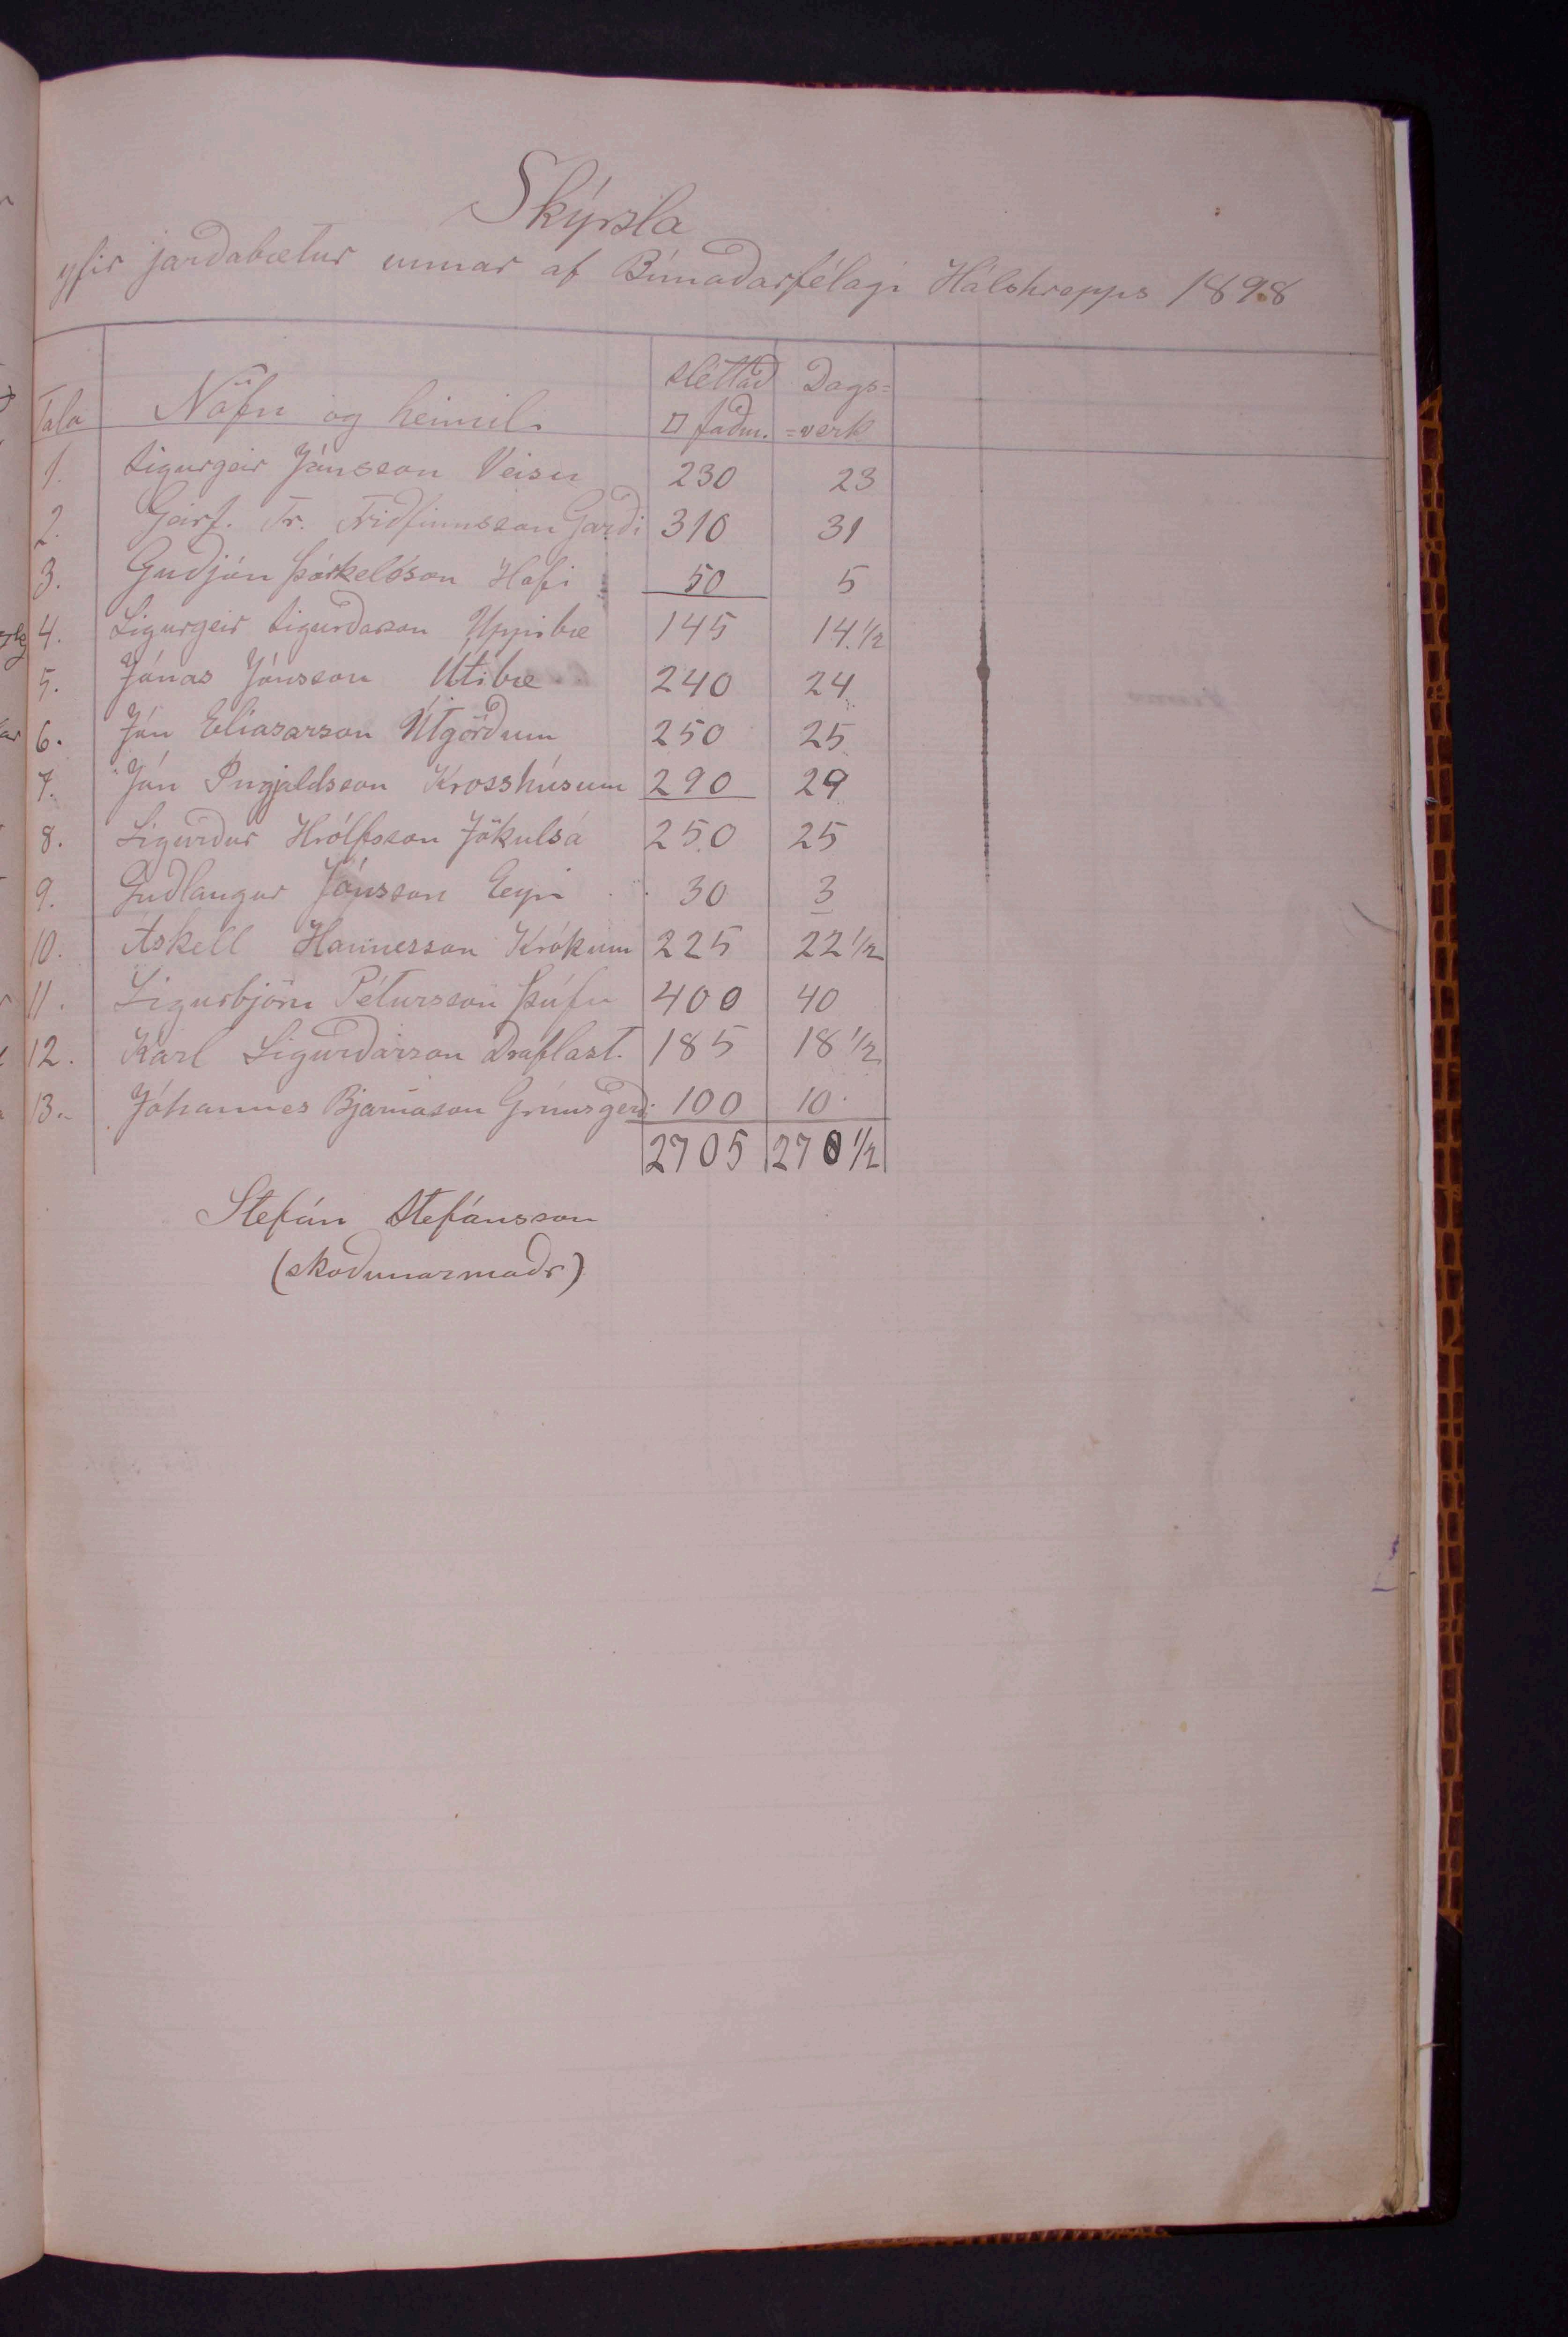 Skýrsla
yfir jarðabætur unnar af Búnaðarfélagi Hálshrepps 1898
Tala Nöfn og heimili sléttað □ faðm. Dags= =verk
1. Sigurgeir Jónsson Veisu 230 23
2. Geirf. Tr. Friðfinnsson Garði 310 31
3. Guðjón Þorkelsson Hofi 50 5
4. Sigurgeir Sigurðarson Uppibæ 145 14.1/2
5. Jónas Jónsson Útibæ 240 24
6. Jón Eliasarson Útgörðum 250 25
7. Jón Ingjaldsson Krosshúsum 290 29
8. Sigurður Hrólfsson Jökulsá 250 25
9. Guðlaugur Jónsson Eyri 30 3
10. Áskell Hannesson Krókum 225 22 1/2
11. Sigurbjörn Pétursson Þúfu 400 40
12. Karl Sigurðarson Draflast. 185 18 1/2
13. Jóhannes Bjarnason Grímsgerði 100 10
2705 270 1/2
Stefán Stefánsson
(skoðunarmaðr)